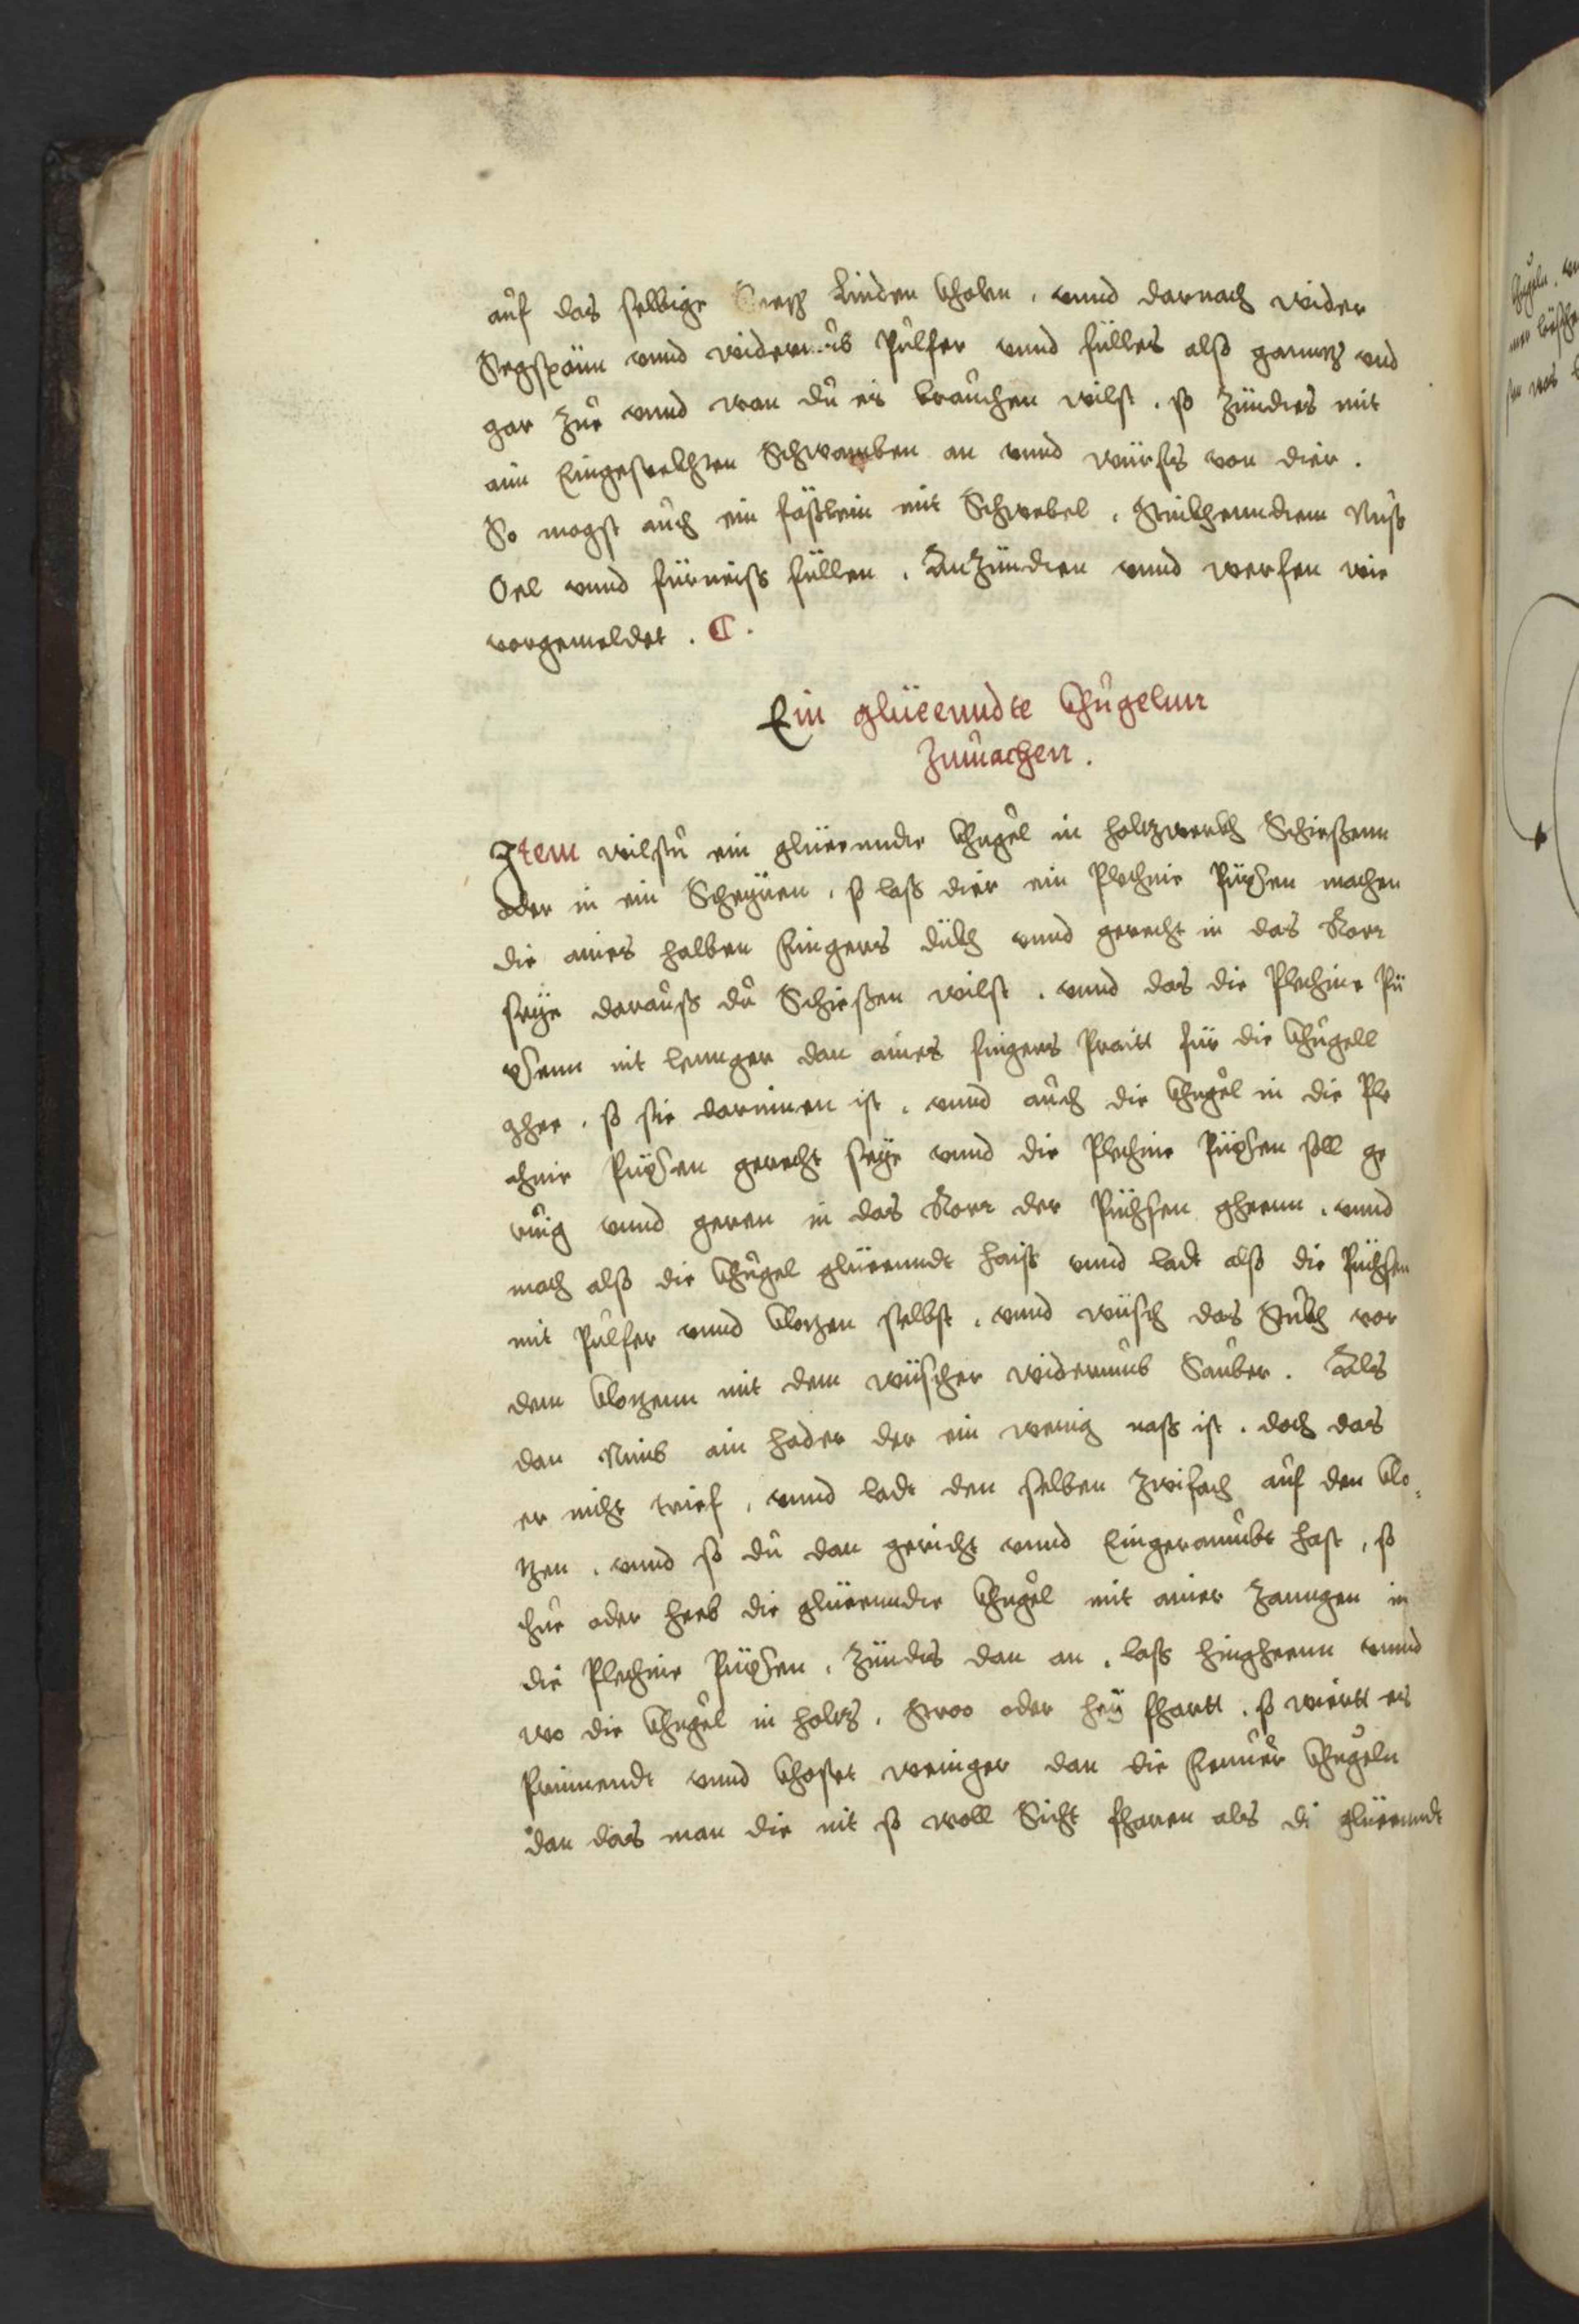 auf das selbige Linden Kholen, vnnd darnach wider
Segspänn vnnd widerumb Pulfer vnnd fülles also ganntz vnd
gar zue vnnd wan du es brauchen wilst, so zündes mit
ain Eingesteckhten Schwamben an vnnd würffs von dier.
So magst auch ein fäßlein mit Schwebel, Nuß
Oel vnnd fürneiß füllen, Anzündten vnnd werfen wie
vorgemeldet.
Ein glüeenndte Khugelnn
zumachen.
Item wilstu ein glüeenndte Khugel in holtzwerkh Schießenn
oder in ein Scheÿren, so laß dier ein Plechine Püxsen machen
die aines halben Fingers dükh vnnd gerecht in das Rorr
seÿe darauß du Schießen wilst, vnnd das die Plechine Pü
xsenn nit lennger dan aines fingers Praitt für die Khugell
ghee, so sie darinnen ist, vnnd auch die Khugel in die Ple
chine Püxsen gerecht seÿe vnnd die Plechine Püxsen soll ge
ruig vnnd geren in das Rorr der Püchsen gheenn, vnnd
mach also die Khugel glüeenndt haiß vnnd ladt also die Püchsen
mit Pulfer vnnd Klotzen selbst, vnnd wüsch das Stukh vor
dem Klotzenn mit dem wüscher widerumb Sauber. Als
dan Nimb ain hader der ein wenig naß ist, doch das
er nicht trief, vnnd ladt den selben zwifach auf den Klo¬
tzen, vnnd so du dan gericht vnnd Eingeraumbt hast, so
thue oder heeb die glüeenndte Khugel mit ainer Zanngen in
die Plechine Püxsen, zündts dan an, laß hingheenn vnnd
wo die Khugel in holtz, Stroo oder heÿ fhartt, so wiertt es
Prinnendt vnnd Khostet weniger dan die Feuuer Khugeln
dan das man die nit so woll Sicht fharen als di glüeenndt